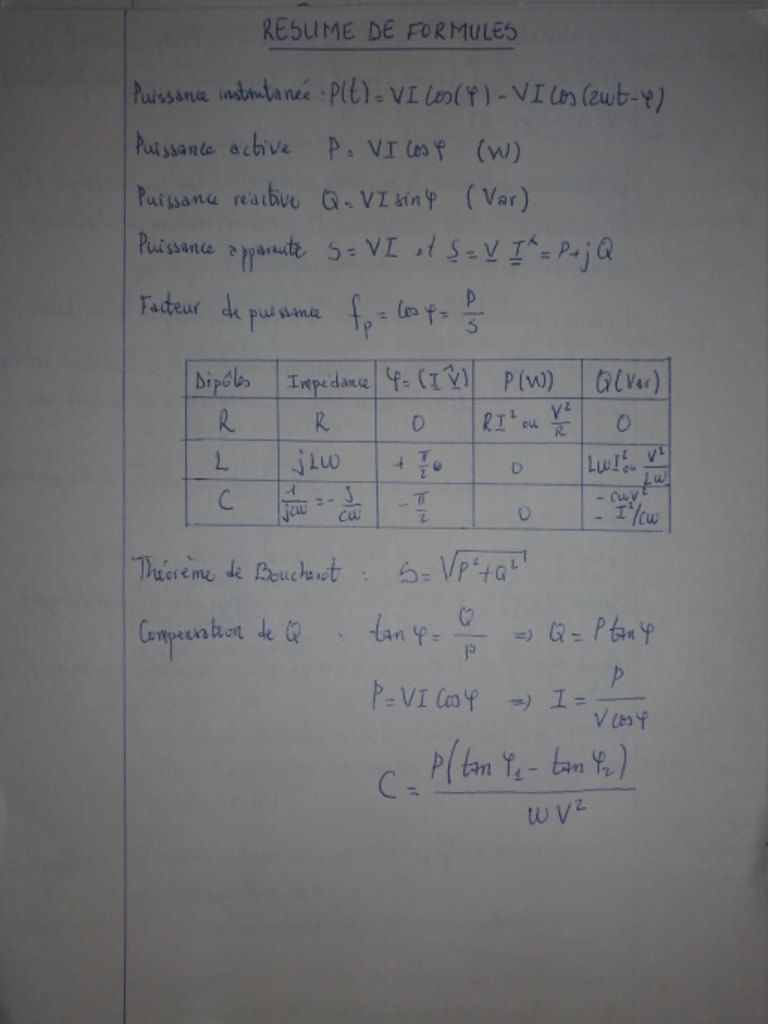 RESUME DE FORMULES
Puissance instantanée : P(t) = VI Cos(φ) - VI Cos(2ωt-φ)
Puissance active P = VI Cosφ (W)
Puissance réactive Q = VI sinφ (Var)
Puissance apparente S = VI et S = V I* = P+jQ
Facteur de puissance fp = Cosφ = P/S
Dipôles Impédance φ = (I V) P(W) Q(Var)
R R 0 RI² ou V²/R 0
L jLω + π/2 0 LωI² ou V²/Lω
C 1/jcω = - j/cω - π/2 0 - cωV² - I²/cω
Théorème de Boucherot : S = √P²+Q²
Compensation de Q : tan φ = Q/P => Q = P tan φ
P = VI Cosφ => I = P/V cosφ
C = P(tan φ1 - tan φ2)/ωV²